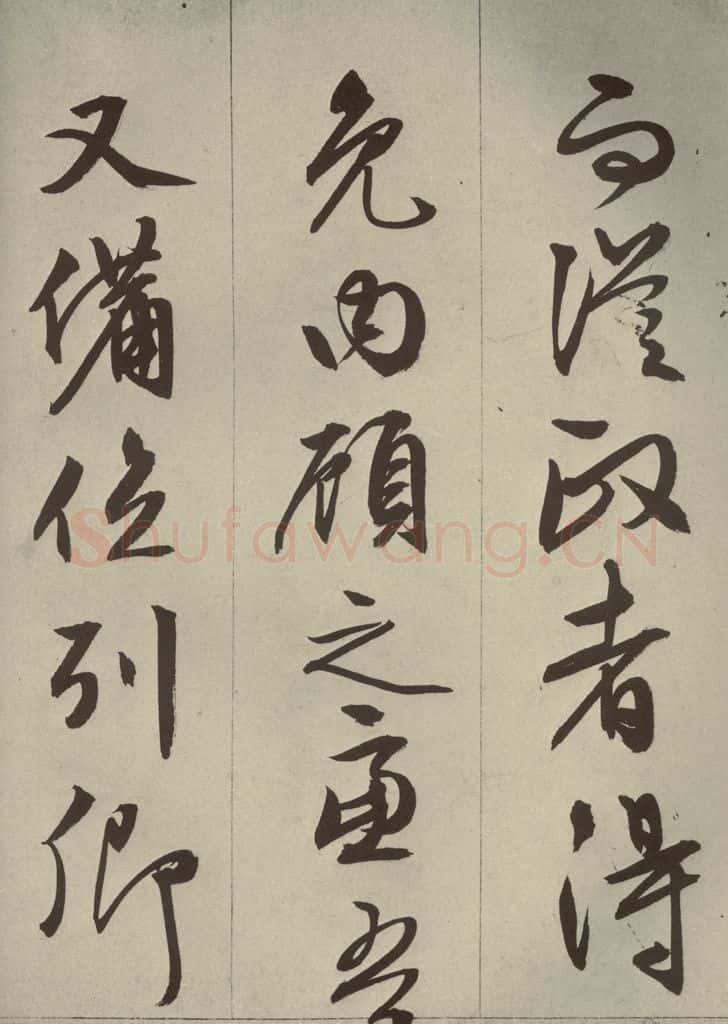 而從政者得
免內顧之慮吾
又備位列卿
Shufawang.CN